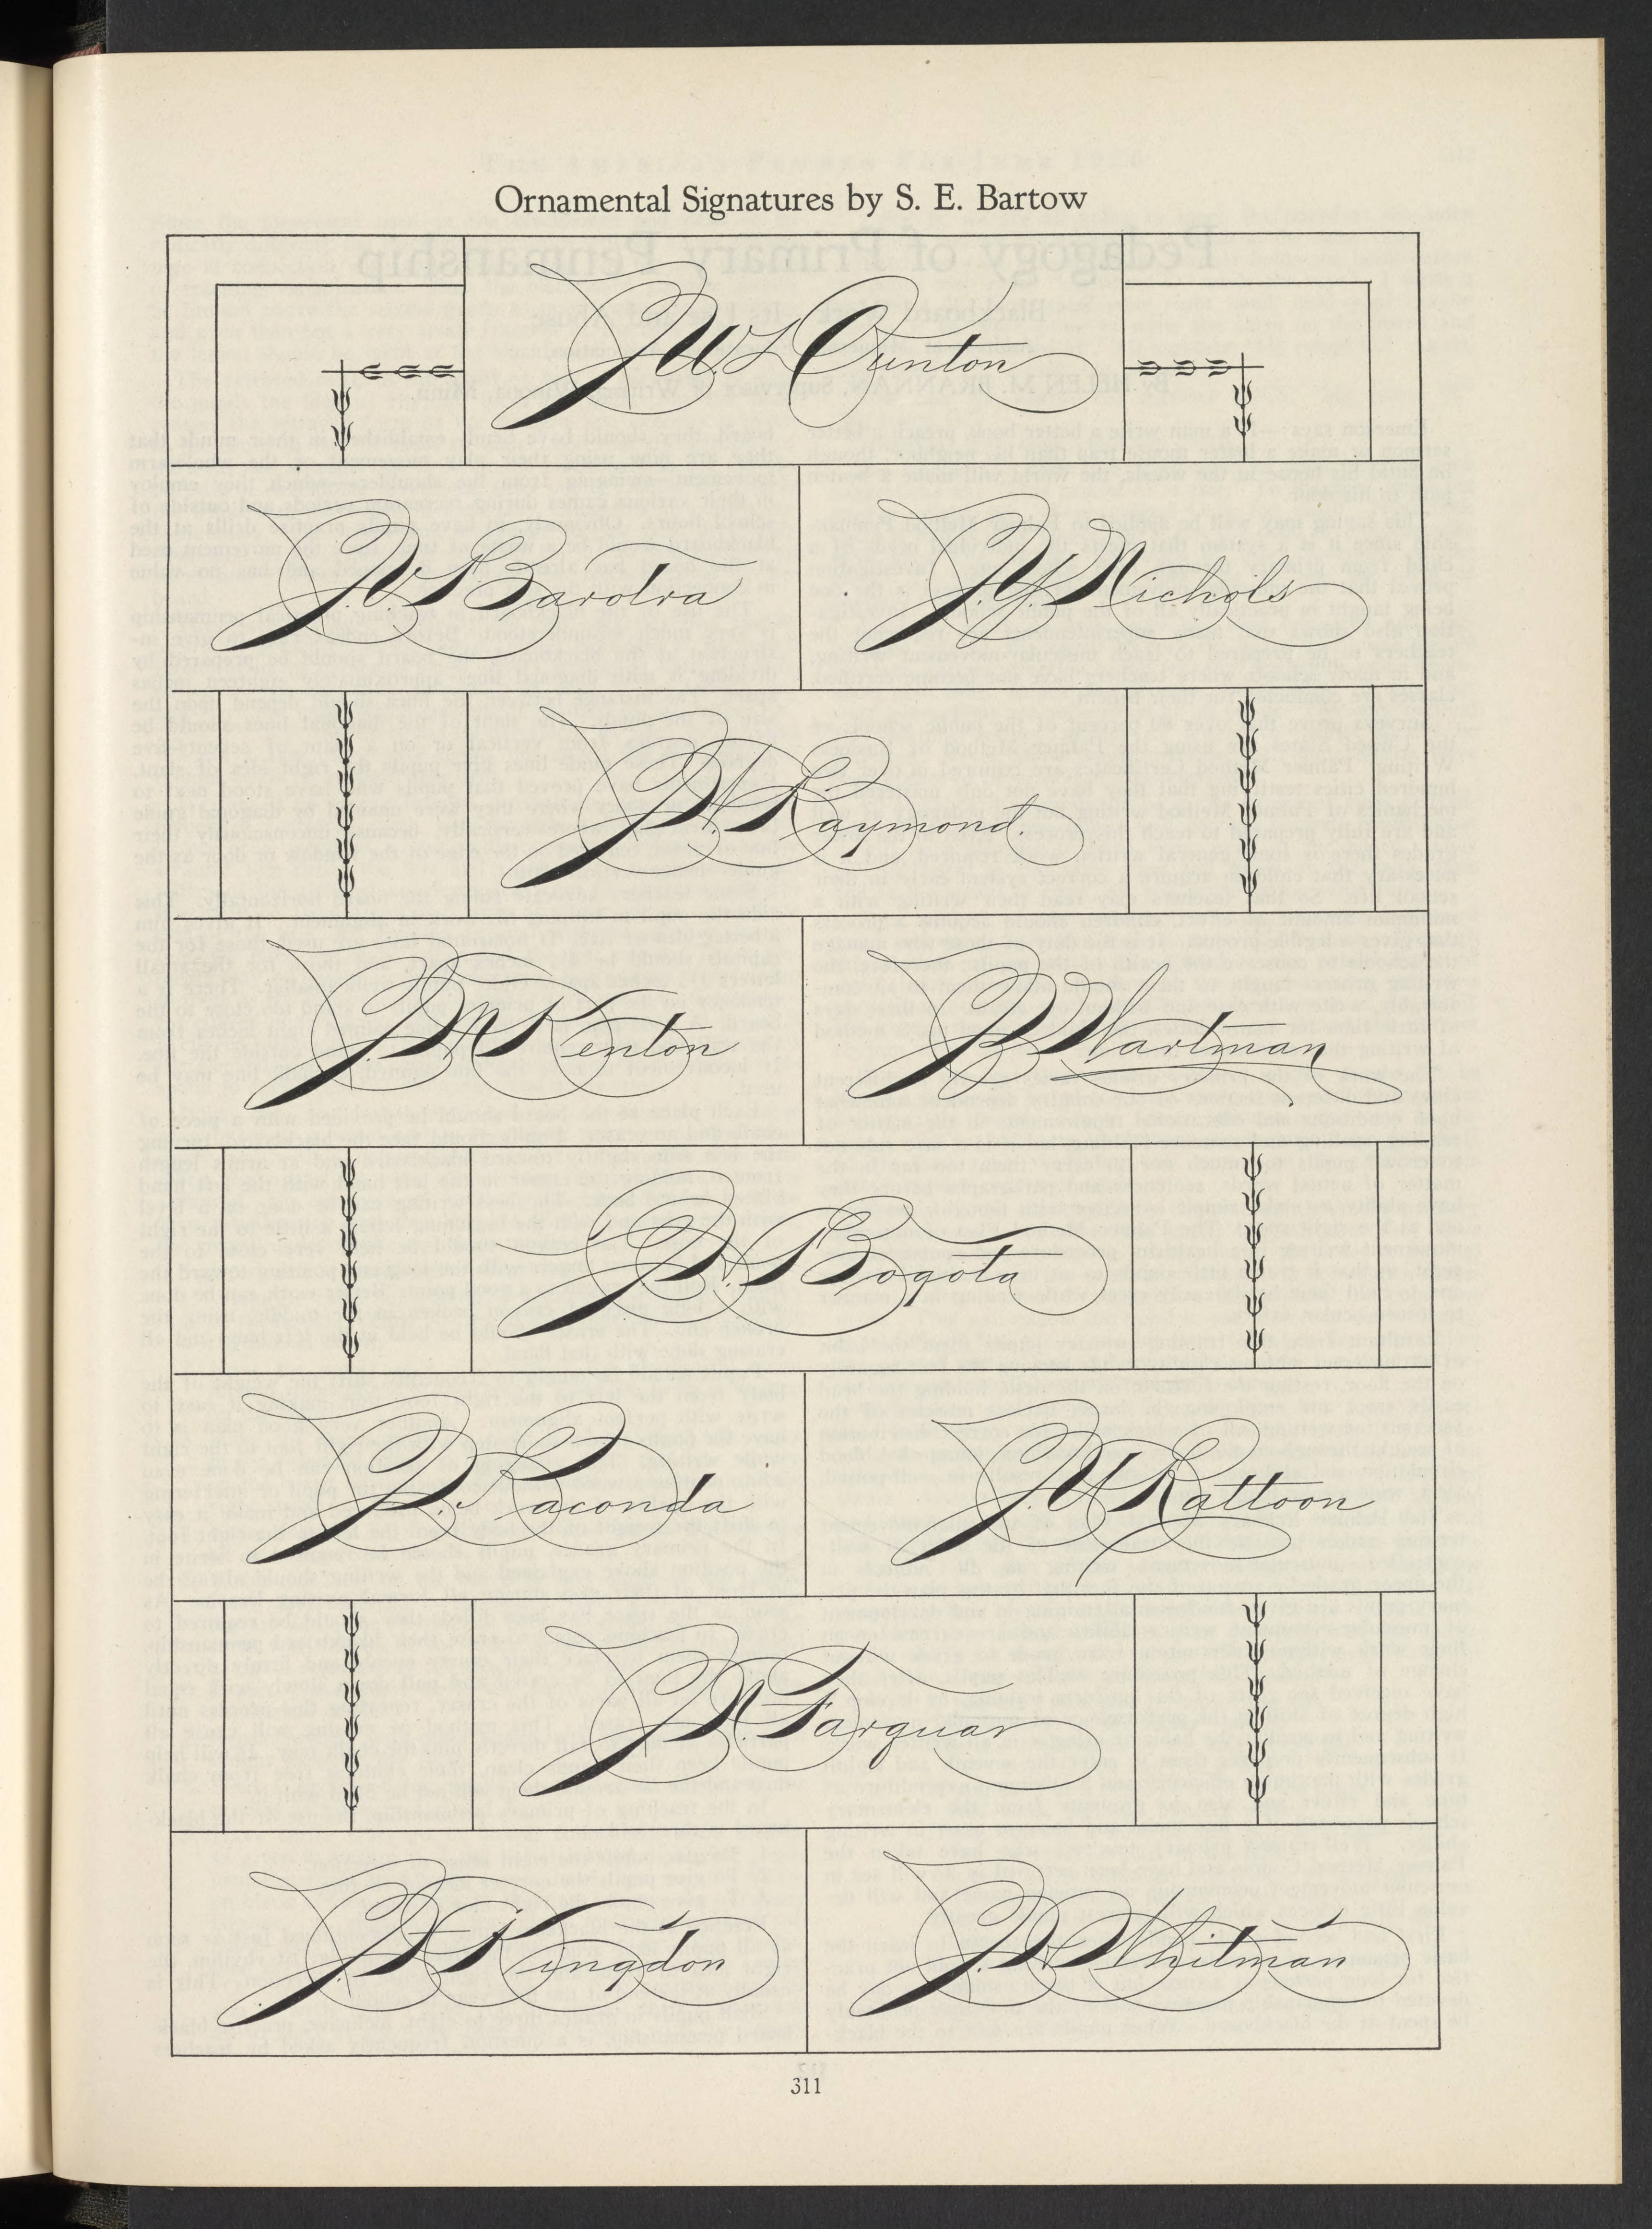 Ornamental Signatures by S. E. Bartow
J. W. L. Ounton
J. V. Barotra
J. Y. Nichols
Raymond.
J. M. Kenton
Wartman
Bogota
Raconda
J. U. Rattoon
J. N. Farquar
Kingdon
Whitman
311